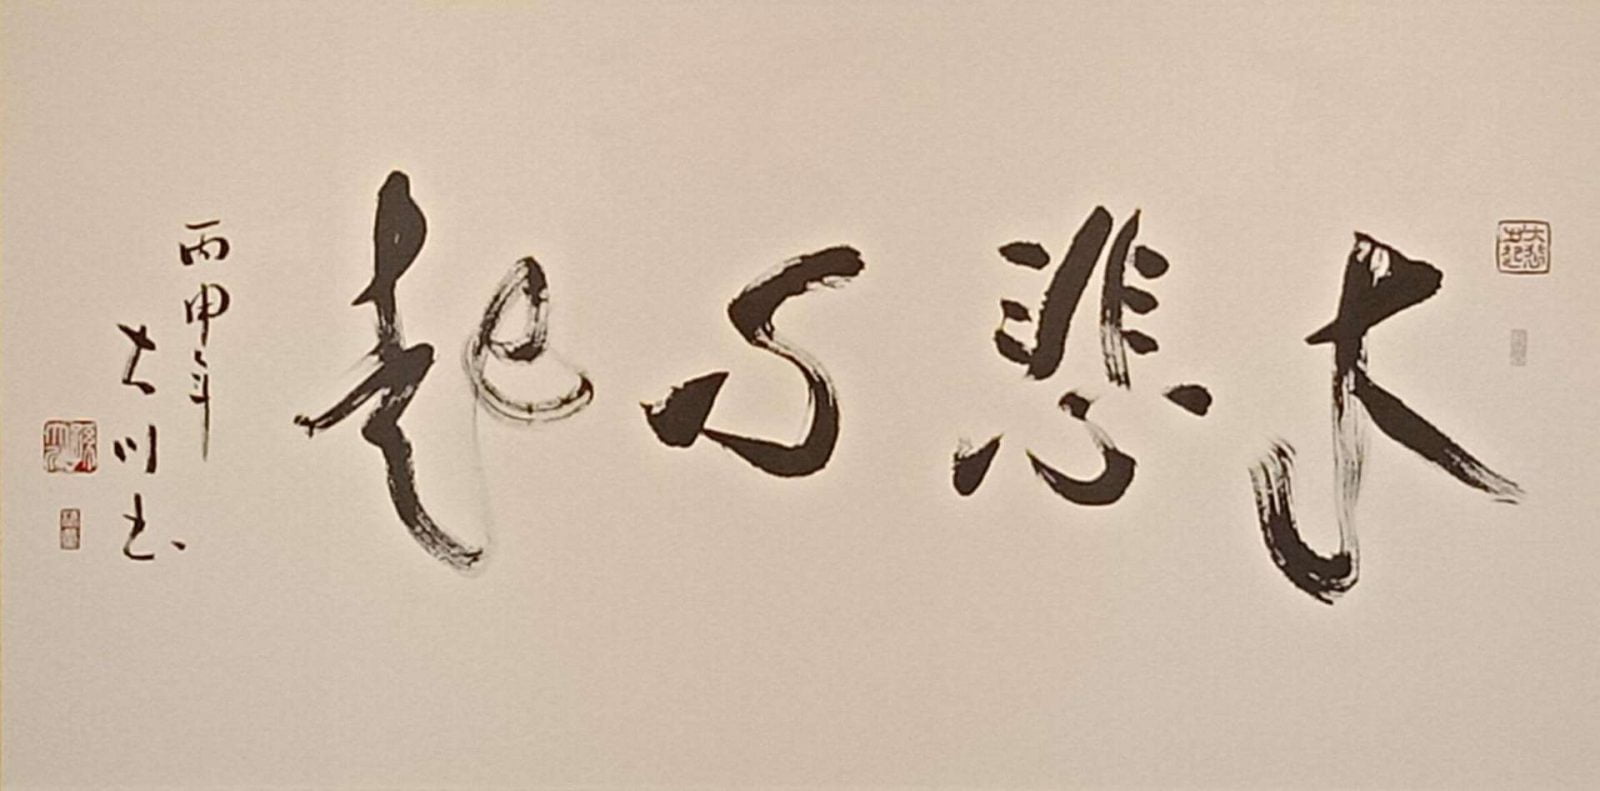 大悲心起
丙申年
大川书